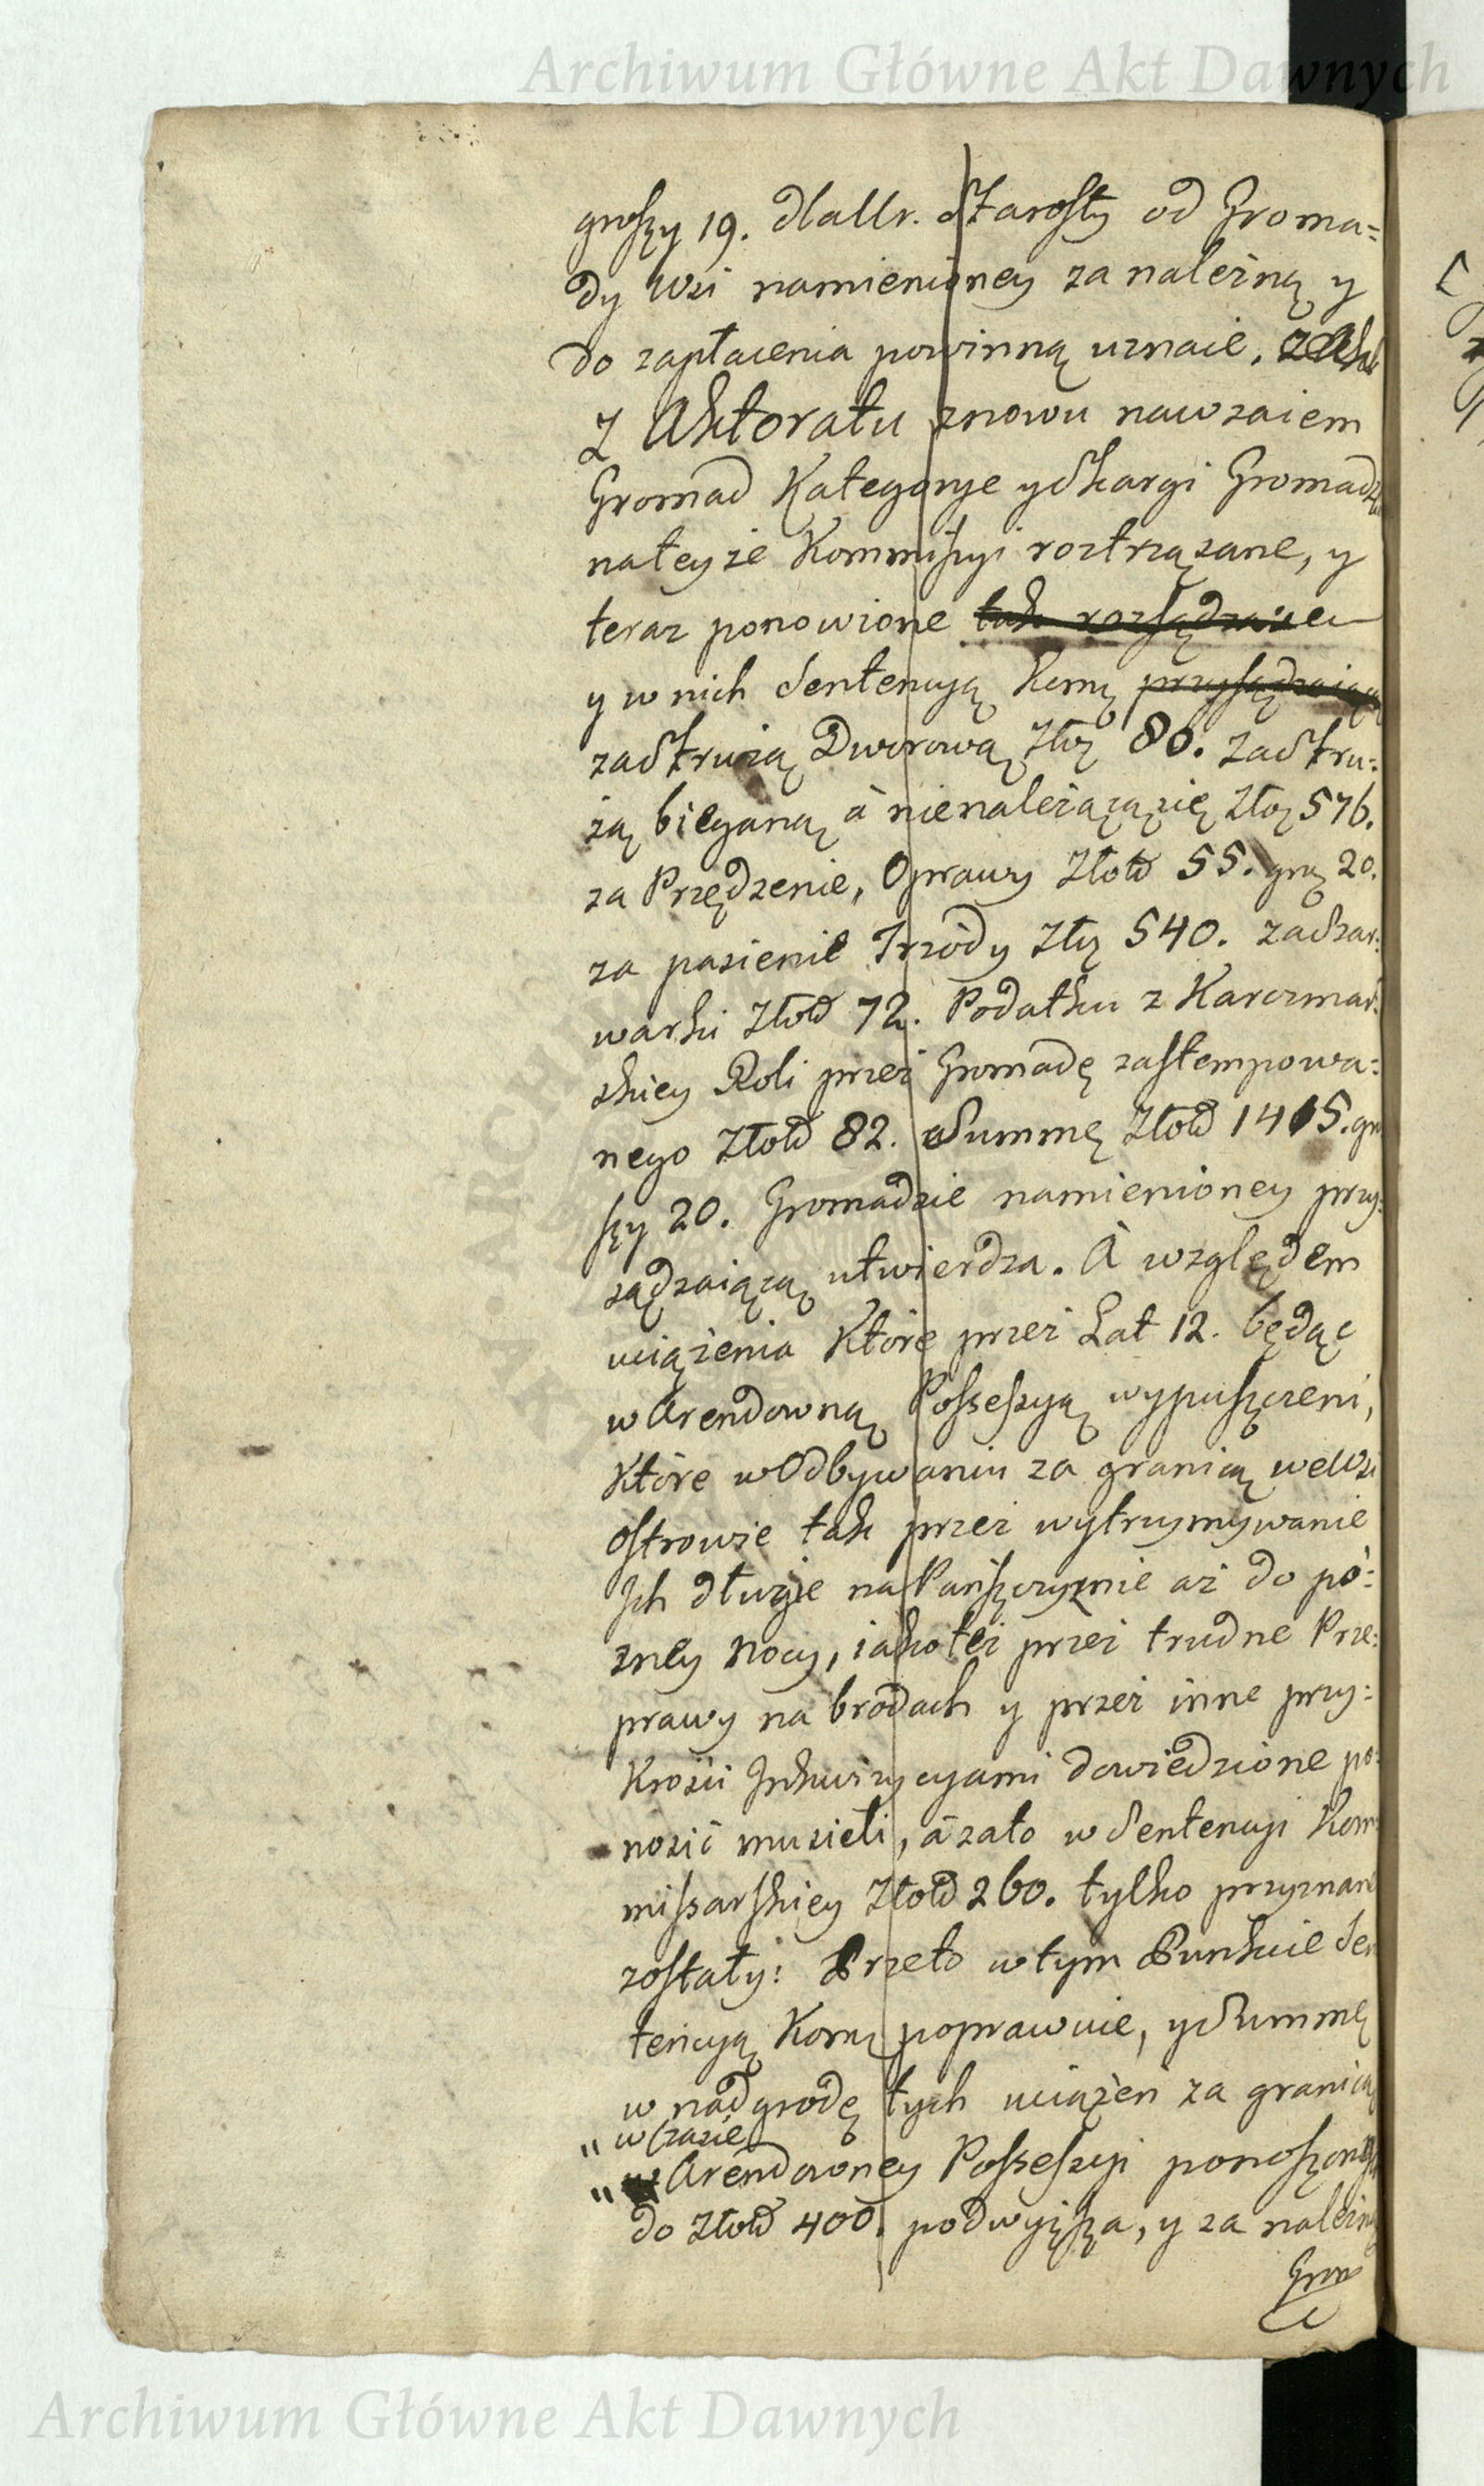 Archiwum Główne Akt Dawnych
groszy 19. dla Ur. Starosty od Groma=
dy Wsi namienioney za należną y
do zapłacenia powinną uznaie.
Z Aktoratu znowu nawzaiem
Gromad Kategorye y Skargi Gromadz
na teyże Kommissyi roztrząsane, y
teraz ponowione tak rozsądzaiе
y w nich Sentencyą Komą przysądzaiącą
za Strużą Dworową Złoz 80. za Stru=
żą bieganą à nienależącą się Złoz 576.
za Przędzenie, Oprawy Złotd 55. groz 20.
za pasienie Trzody Złz 540. za Szar=
warki Złotd 72. Podatku z Karczmar=
skiey Roli przez Gromadę zastempowa=
nego Złotd 82. Summę Złotd 1405. gro
szy 20. Gromadzie namienioney przy=
sądzaiącą utwierdza. À względem
uciążenia Które przez Lat 12. będąc
w Arendowną Possessyą wypuszczeni,
Które w Odbywaniu za granicą we Wsi
Ostrowie tak przez wytrzymywanie
Ich długie na Pańszczyznie aż do pó=
zney Nocy, iako też przez trudne Prze=
prawy na brodach y przez inne przy=
Krości Inkwizycyami dowiedzione po=
nosić musieli, à za to w Sentencyi Kom=
missarskiey Złotd 260. tylko przyznane
zostały: Przeto w tym Punkcie Sen
tencyą Komz poprawuie, y Summę
w nadgrodę tych uciążeń za granicą
" w Czasie
" Arendowney Possessyi ponoszonych
do Złotd 400. podwyższa, y za należną
Grom
Archiwum Główne Akt Dawnych